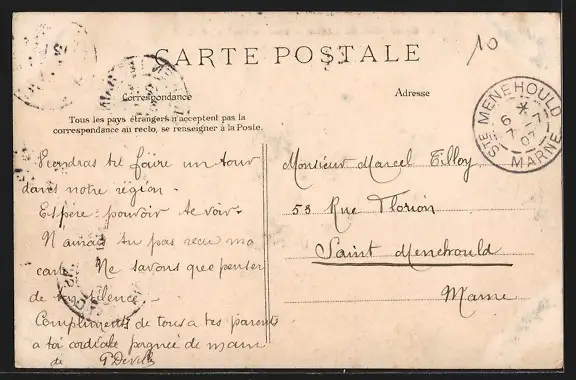 CARTE POSTALE
10
Correspondance
Adresse
Tous les pays étrangers n'acceptent pas la
correspondance au recto, se renseigner à la Poste.
STE MENEHOULD
6 7-7
07
MARNE
Viendras tu faire un tour
dans notre région -
Espère pouvoir te voir.
N'aurais tu pas recu ma
carte Ne savons que penser
de ton silence -
Compliments de tous a tes parents
a toi cordiale poignée de main
Monsieur Marcel Tilloy
53 Rue Florion
Saint Menehould
Marne